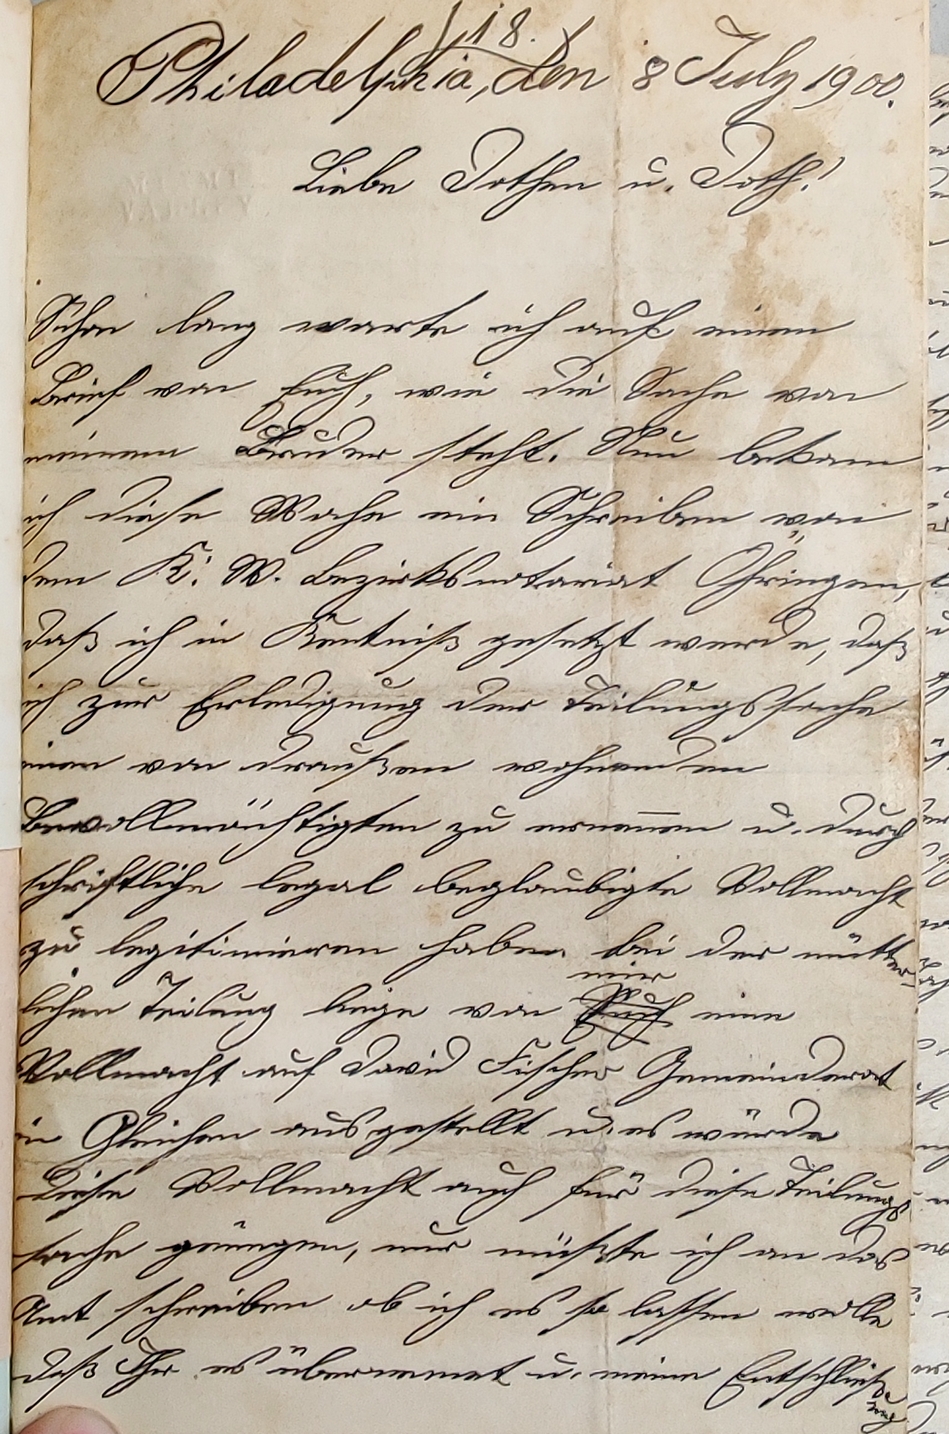 (18.)
Philadelphia, den 8 July 1900.
Liebe Dothen u. Doth!
Schon lang warte ich auf einen
Brief von Euch, wie die Sache von
meinem Bruder steht. Nun bekam
ich diese Woche ein Schreiben von
dem K. W. Bezirksnotariat Öhringen,
daß ich in Kentniß gesetzt werde, daß
ich zur Erledigung der Teilungssache
einen von draußen wohnenden
Bevollmächtigten zu ernennen u. durch
schriftliche legal beglaubigte Vollmacht
zu legitimieren habe. Bei der mütter-
lichen Teilung liege von mir eine
Vollmacht auf David Fischer Gemeinderat
in Gleichen ausgestellt u. es würde
diese Vollmacht auch für diese Teilungs
sache genügen, nur müßte ich an das
Amt schreiben ob ich es so lassen wolle
daß Ihr es übernemmt u. meine Entschließung